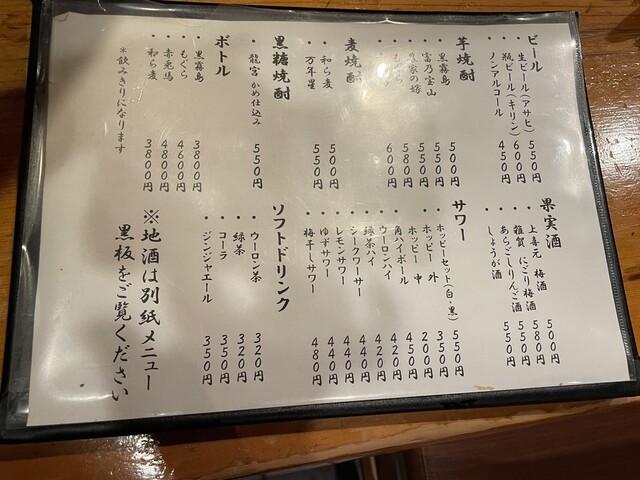 ビール
・生ビール(アサヒ) 550円
・瓶ビール(キリン) 600円
・ノンアルコール 450円
芋焼酎
・黒霧島 500円
・富乃宝山 550円
家の嫁 580円
もぐら 550円
600円
麦焼酎
・和ら麦 500円
・万年星 550円
黒糖焼酎
・龍宮 かめ仕込み 550円
ボトル
・黒霧島 3800円
・もぐら 4600円
・赤兎馬 4800円
・和ら麦 3800円
*飲みきりになります
果実酒
・上喜元 梅酒 500円
・雑賀 にごり梅酒 580円
・あらごしりんご酒 550円
・しょうが酒 550円
サワー
・ホッピーセット(白・黒) 550円
・ホッピー 外 350円
・ホッピー 中 200円
・角ハイボール 450円
・ウーロンハイ 420円
・緑茶ハイ 420円
・シークワーサー 440円
・レモンサワー 440円
・ゆずサワー 440円
・梅干しサワー 480円
ソフトドリンク
・ウーロン茶 320円
・緑茶 320円
・コーラ 350円
・ジンジャエール 350円
※地酒は別紙メニュー
黒板をご覧ください